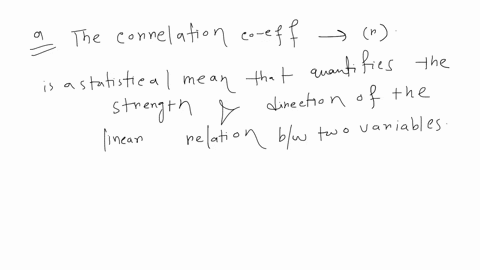 a The connelation co-eff → (r).
is a statistical mean that quantifies the
strength & direction of the
linear relation b/w two variables.